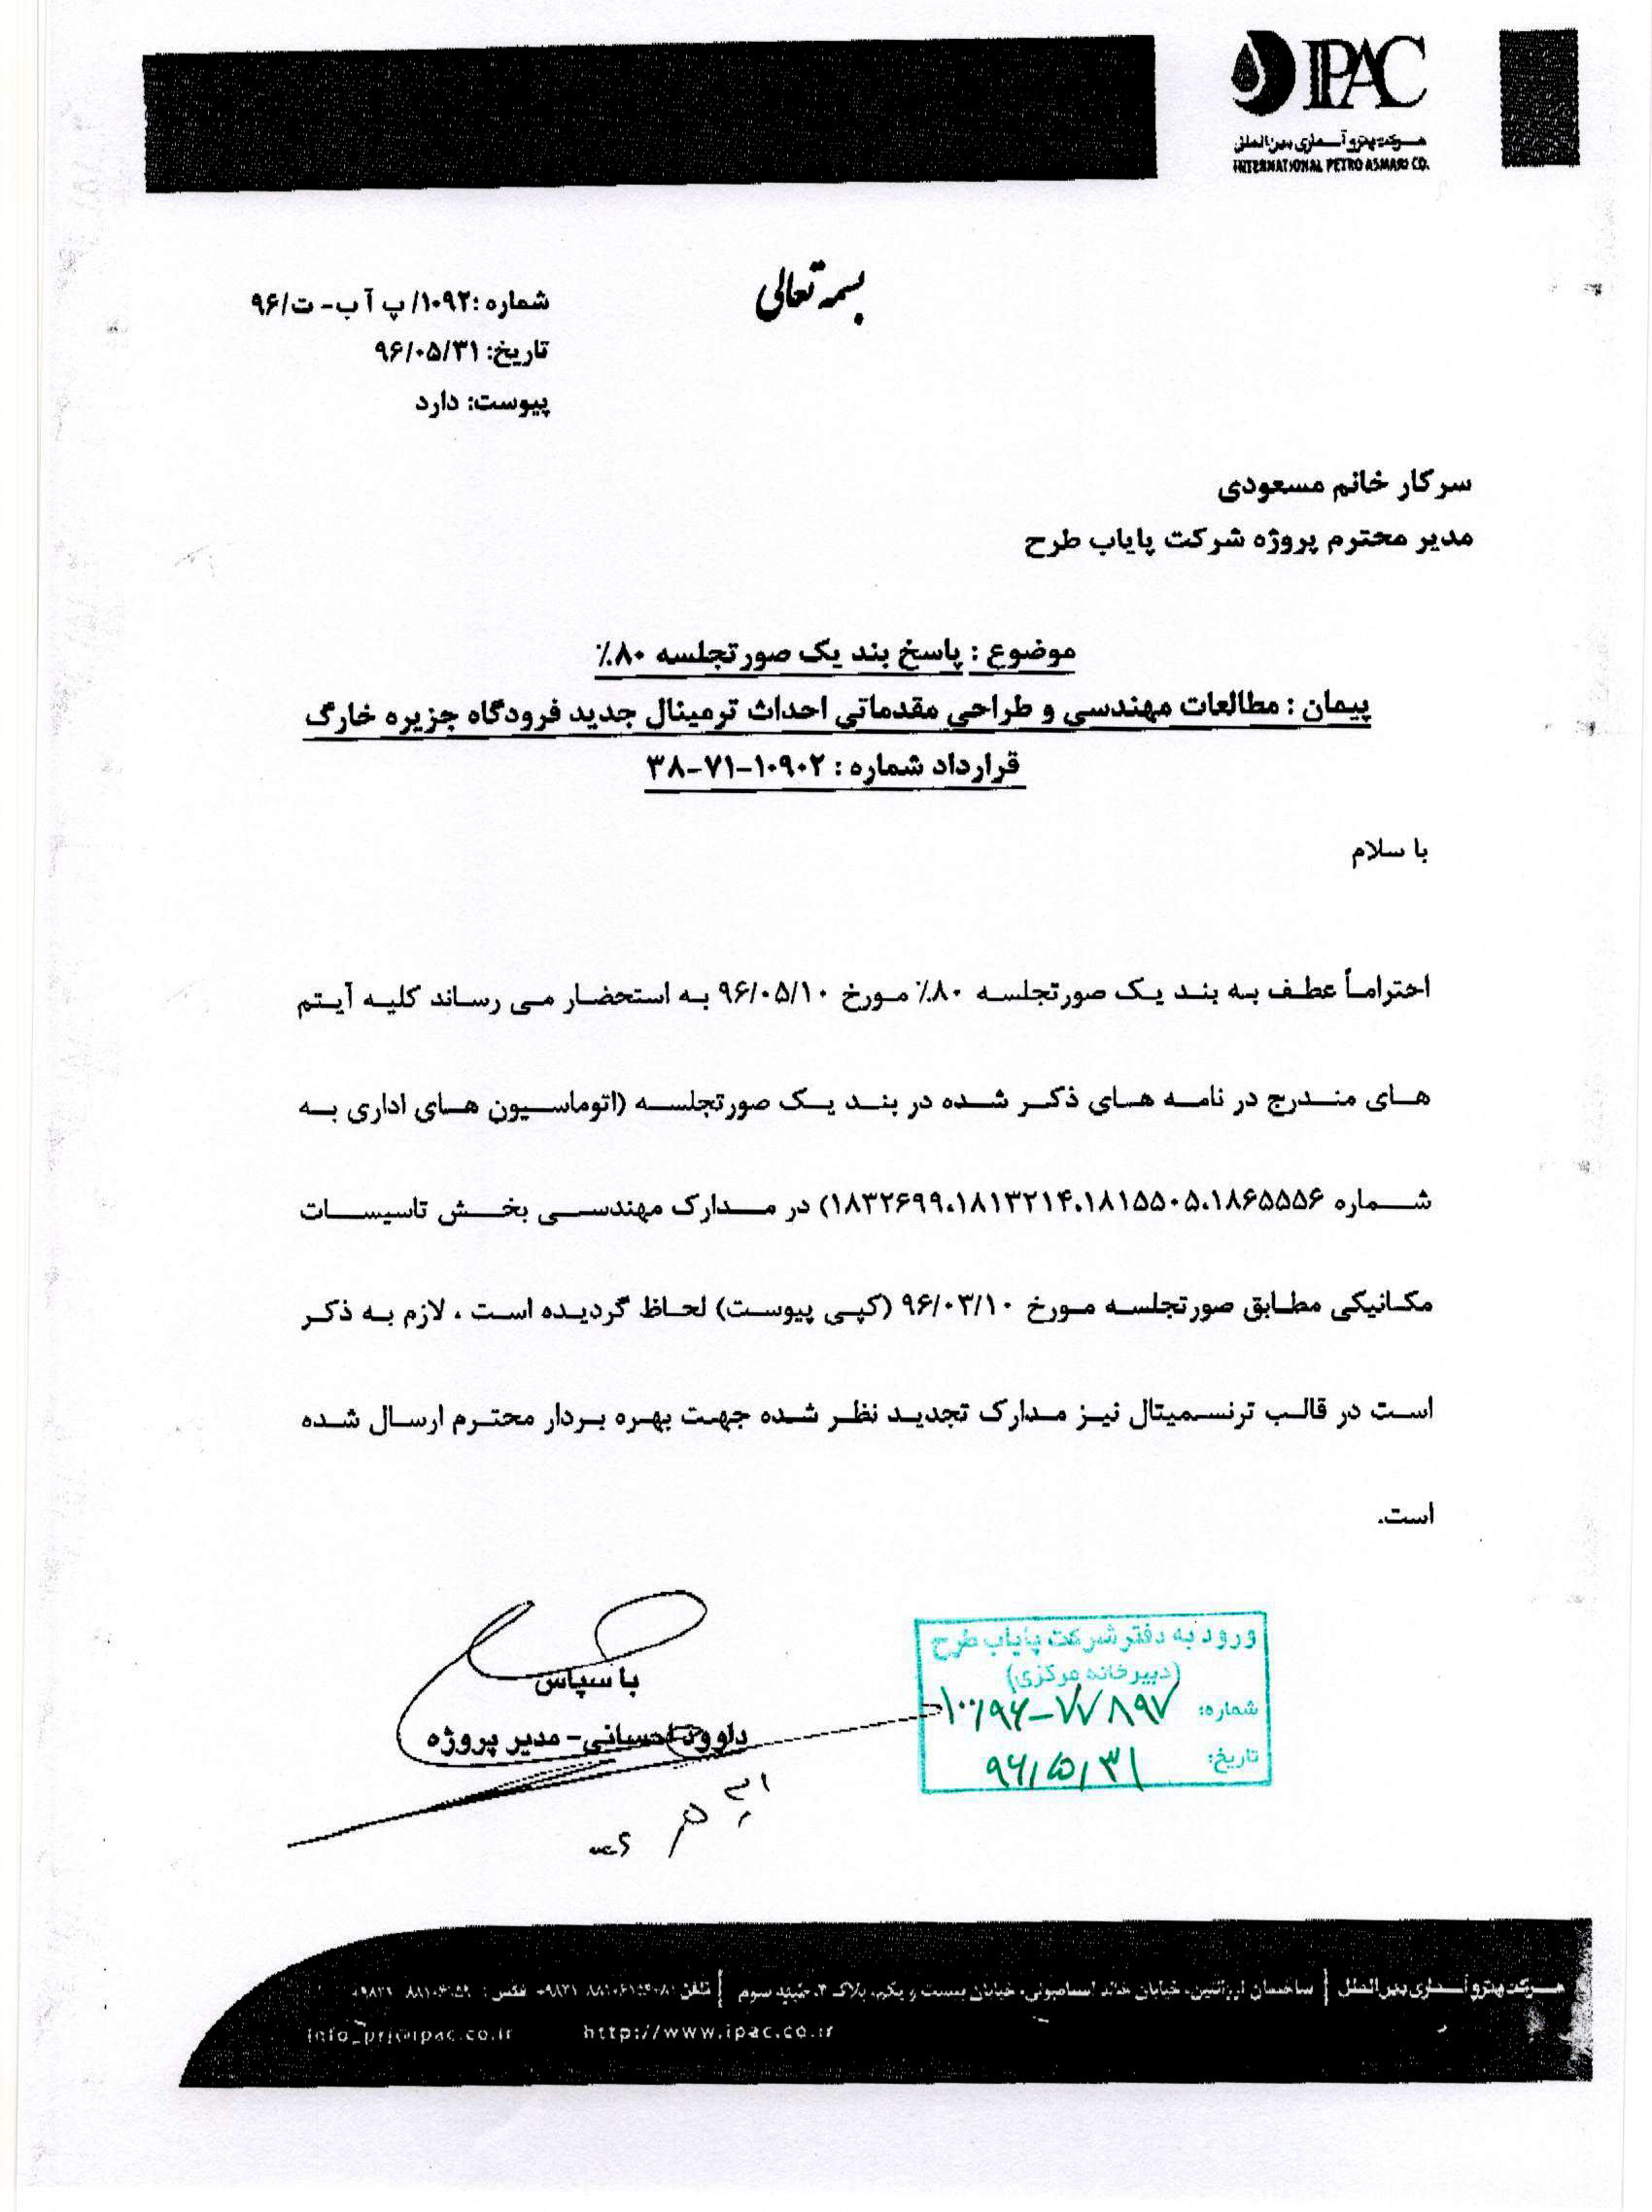 IPAC
شرکت پترو آسماری بین‌المللی
INTERNATIONAL PETRO ASMARI CO.
بسمه تعالی
شماره :۱۰۹۲/ پ آ ب- ت/۹۶
تاریخ: ۹۶/۰۵/۳۱
پیوست: دارد
سرکار خانم مسعودی
مدیر محترم پروژه شرکت پایاب طرح
موضوع : پاسخ بند یک صورتجلسه ۸۰٪
پیمان : مطالعات مهندسی و طراحی مقدماتی احداث ترمینال جدید فرودگاه جزیره خارگ
قرارداد شماره : ۱۰۹۰۲-۷۱-۳۸
با سلام
احتراماً عطف به بند یک صورتجلسه ۸۰٪ مورخ ۹۶/۰۵/۱۰ به استحضار می رساند کلیه آیتم
های مندرج در نامه های ذکر شده در بند یک صورتجلسه (اتوماسیون های اداری به
شماره ۱۸۳۲۶۹۹،۱۸۱۳۲۱۴،۱۸۱۵۵۰۵،۱۸۶۵۵۵۶) در مدارک مهندسی بخش تاسیسات
مکانیکی مطابق صورتجلسه مورخ ۹۶/۰۳/۱۰ (کپی پیوست) لحاظ گردیده است ، لازم به ذکر
است در قالب ترنسمیتال نیز مدارک تجدید نظر شده جهت بهره بردار محترم ارسال شده
است.
با سپاس
داوود احسانی- مدیر پروژه
ورود به دفتر شرکت پایاب طرح
(دبیرخانه مرکزی)
شماره: ۱۰۰/۹۶-۷۷۸۹۷
تاریخ: ۹۶/۵/۳۱
شرکت پترو آسماری بین‌الملل | ساختمان آرژانتین، خیابان خالد اسلامبولی، خیابان بیست و یکم، پلاک ۳، طبقه سوم | تلفن فکس :
info_prj@ipac.co.ir
http://www.ipac.co.ir